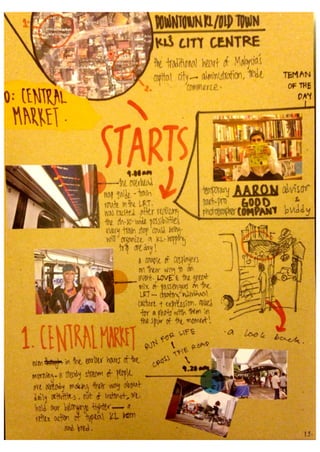 DOWNTOWN KL/OLD TOWN
KL'S CITY CENTRE
the traditional heart of Malaysia's
capital city — administration, trade
commerce.
2.
TEMAN
OF THE
DAY
D: CENTRAL
MARKET.
STARTS
9.00am
the overhead
map guide - train
route in the LRT.
was excited after realizing
the oh-so-wide possibilities
every train stop could bring.
will organize a KL-hopping
trip one day!
temporary
part-pro
photographer
AARON
GOOD
COMPANY
advisor
&
buddy
a couple of cosplayers
on their way to an
event. LOVE'd the great
mix of passengers on the
LRT — individual
culture & expression. asked
for a photo with them in
the spur of the moment!
a look back.
1. CENTRAL MARKET
even in the earlier hours of the
morning, a steady stream of people
are already making their way about
daily activities. out of instinct, we
hold our belongings tighter — a
reflex action of typical KL born
and bred.
RUN FOR LIFE
CROSS THE ROAD
9.20am
13.